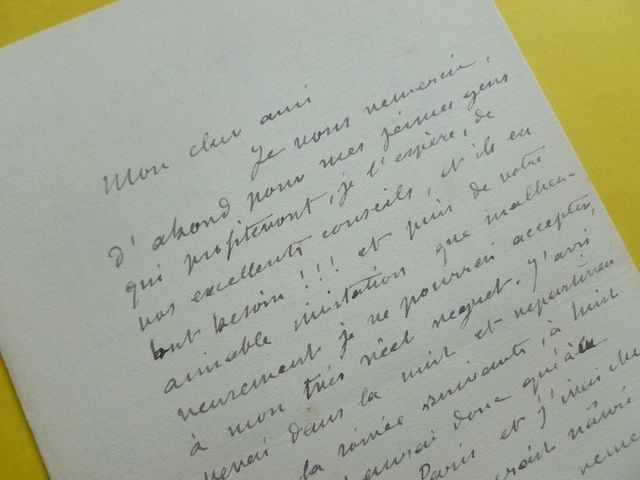 Mon cher ami
Je vous remercie,
d'abord pour mes jeunes gens
qui profiteront, je l'espère, de
vos excellents conseils, et ils en
ont besoin !!! et puis de votre
aimable invitation que malheu-
reusement je ne pourrai accepter,
à mon très réel regret. J'arri
verai dans la nuit et repartirai
la soirée suivante, à huit
aurai donc qu'à
Paris et j'irai che